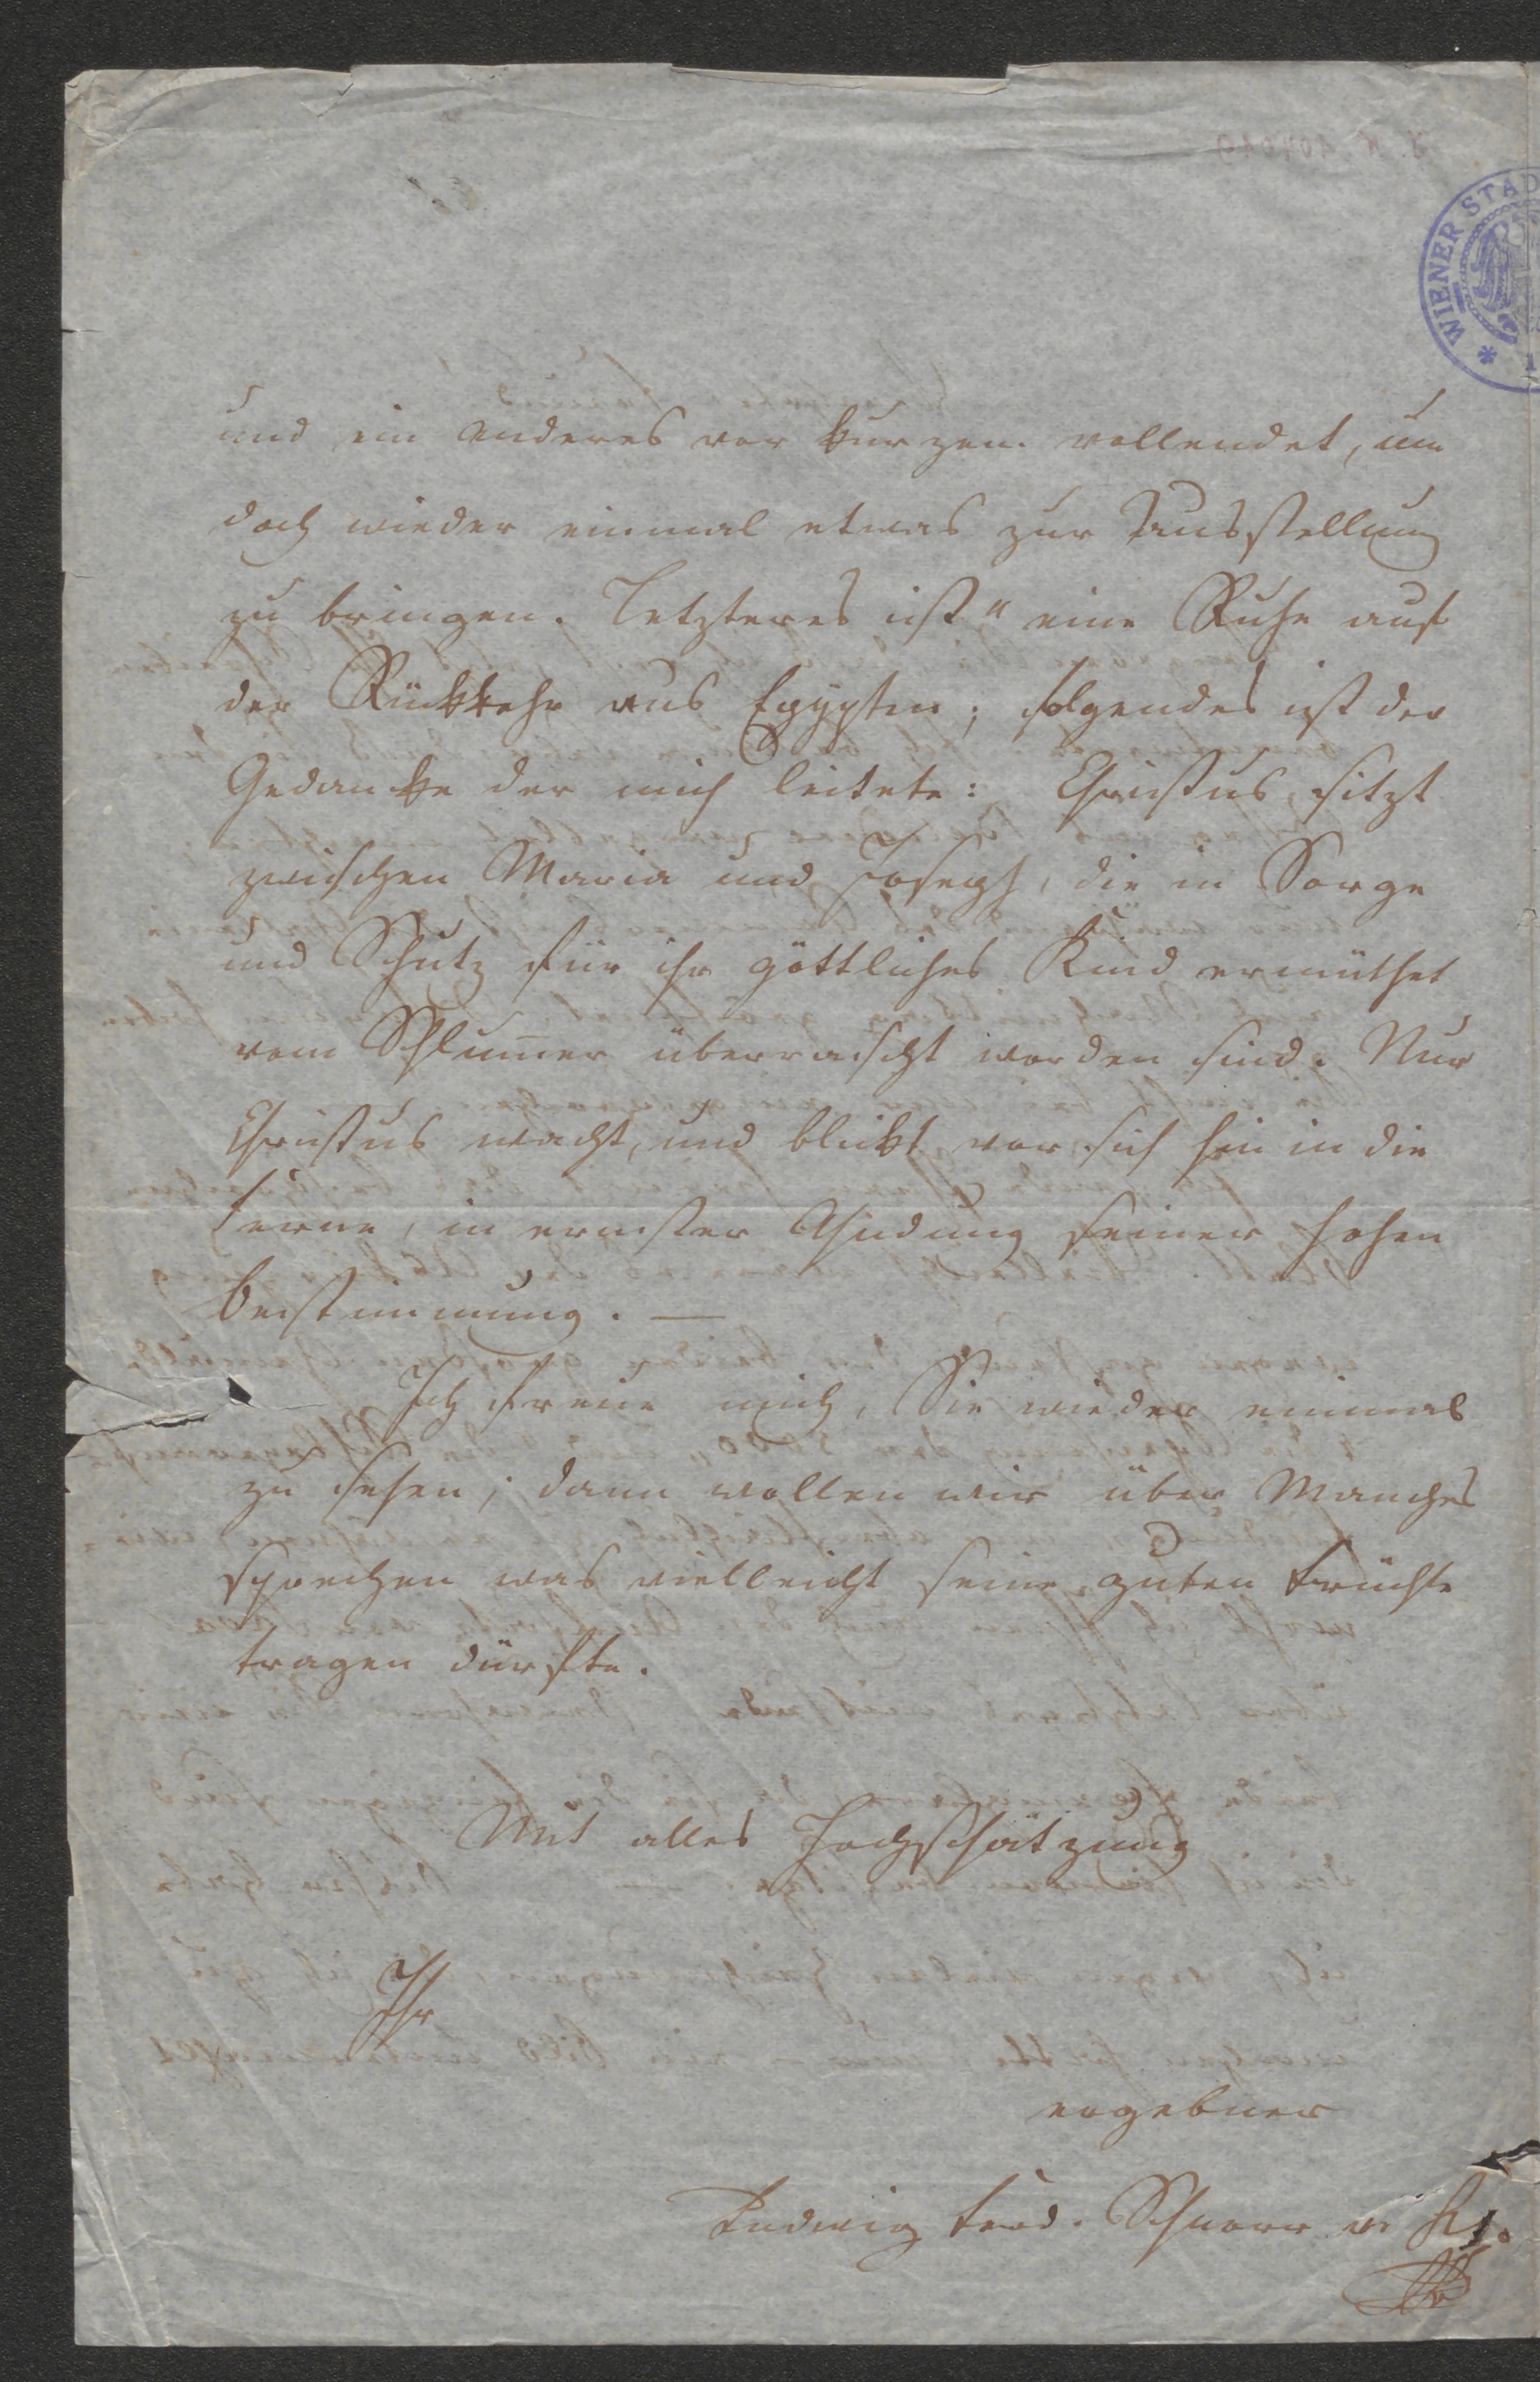 und ein anderes vor kurzem vollendet, um
doch wieder einmal etwas zur Ausstellung
zu bringen. Letzteres ist "eine Ruhe auf
der Rükkehr aus Egypten; folgendes ist der
Gedanke der mich leitete: Christus sitzt
zwischen Maria und Joseph, die in Sorge
und Schutz für ihr göttliches Kind ermüthet
vom Schlum̅er überrascht worden sind. Nur
Christus wacht, und blikt vor sich hin in die
Ferne, in ernster Ahndung seiner hohen
Bestimmung. —
Ich freue mich, Sie wieder einmal
zu sehen; dann wollen wir über Manches
sprechen was vielleicht seine guten Früchte
tragen dürfte.
Mit aller Hochschätzung
Ihr
ergebner
Ludwig Ferd. Schnorr v.
WIENER STAD